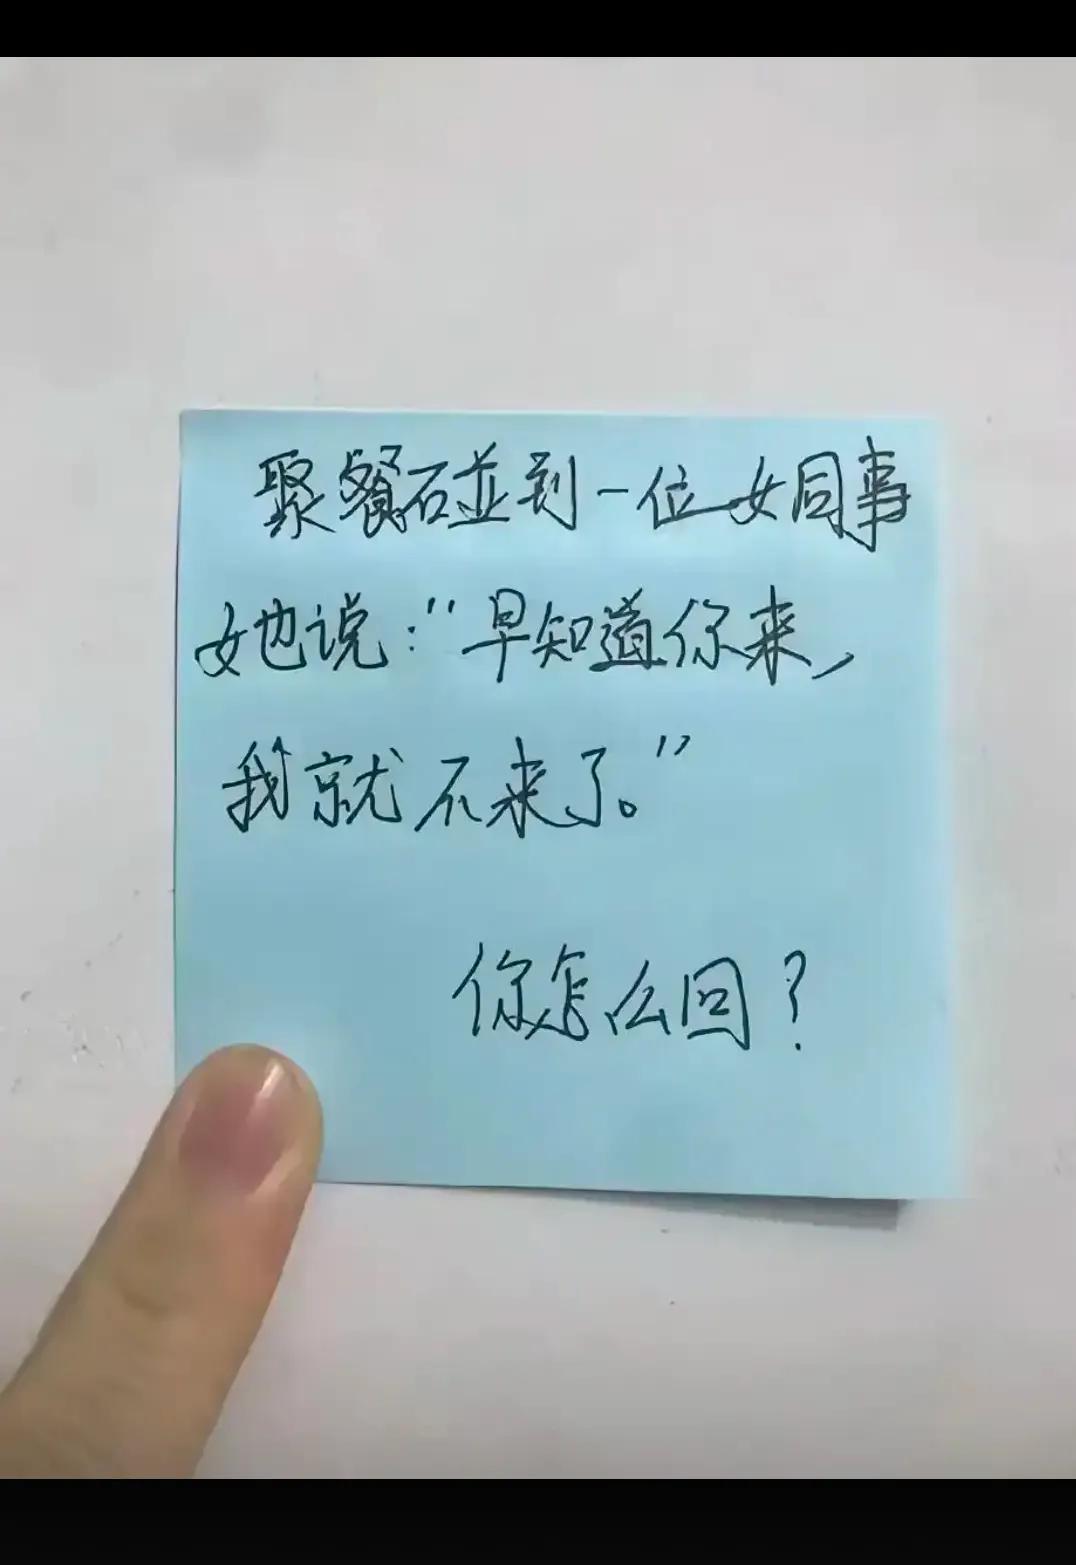 聚餐碰到一位女同事
她说："早知道你来，
我就不来了。"
你怎么回？